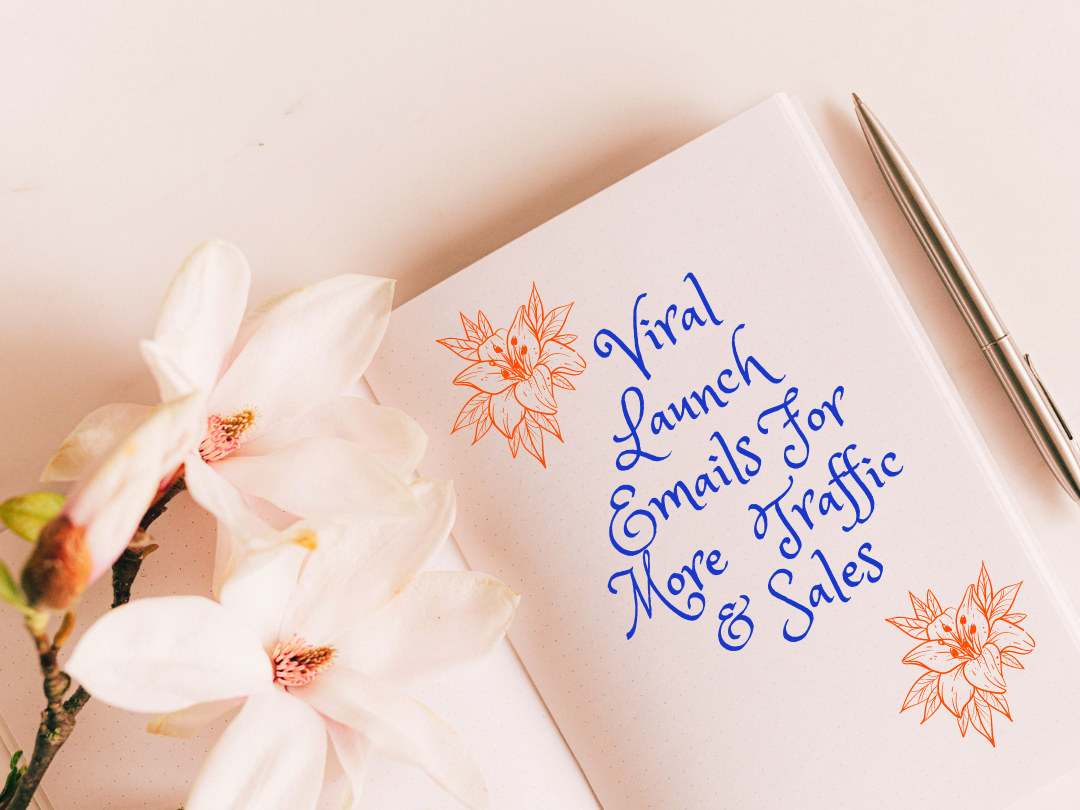 Viral
Launch
Emails For
More Traffic
& Sales